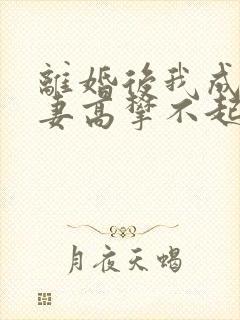 離婚後我成
妻高攀不起
月夜天蝎